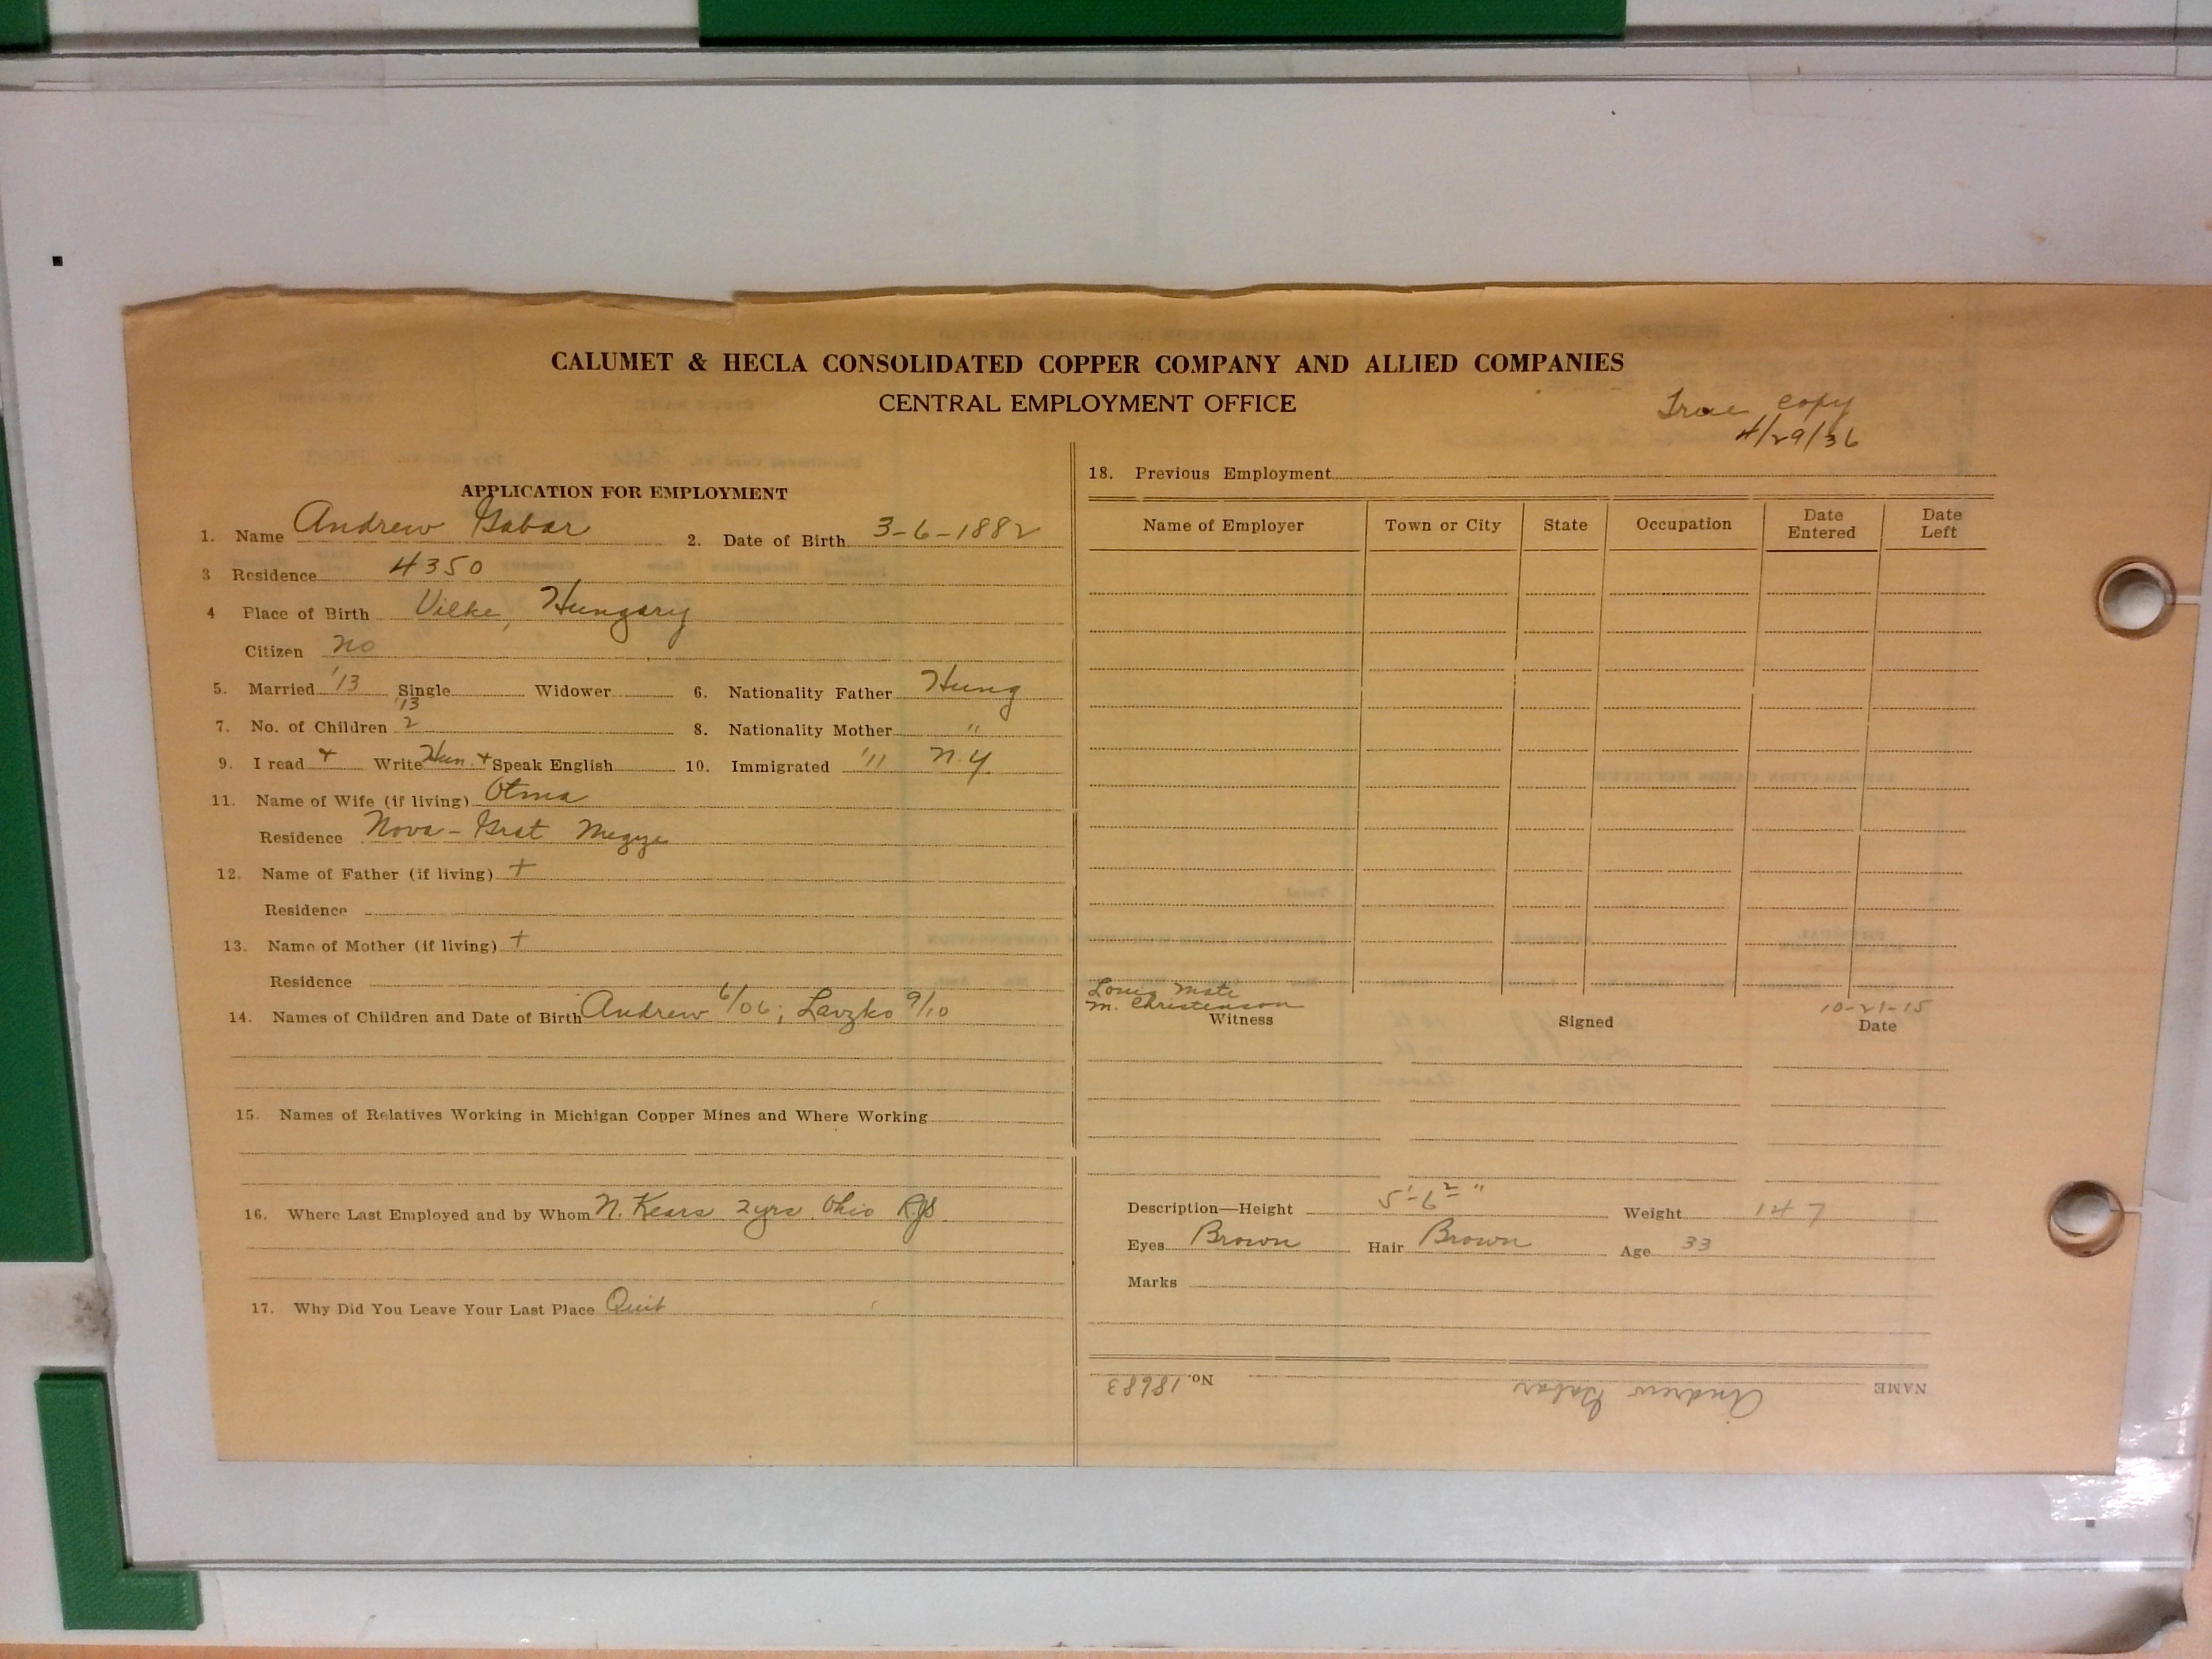 CALUMET & HECLA CONSOLIDATED COPPER COMPANY AND ALLIED COMPANIES
CENTRAL EMPLOYMENT OFFICE
True copy
4/29/36
APPLICATION FOR EMPLOYMENT
1. Name Andrew Gabar 2. Date of Birth 3-6-1882
3 Residence 4350
4 Place of Birth Vilke, Hungary
Citizen no
5. Married '13 Single Widower 6. Nationality Father Hung
'13
7. No. of Children 2 8. Nationality Mother "
9. I read + Write Hun. + Speak English 10. Immigrated '11 N.Y.
11. Name of Wife (if living) Otma
Residence Nova-Grat Megye
12. Name of Father (if living) +
Residence
13. Name of Mother (if living) +
Residence
14. Names of Children and Date of Birth Andrew 6/06; Lavzko 9/10
15. Names of Relatives Working in Michigan Copper Mines and Where Working
16. Where Last Employed and by Whom N. Kears 2 yrs. Ohio
17. Why Did You Leave Your Last Place Quit
18. Previous Employment
Name of Employer Town or City State Occupation Date Entered Date Left
Louis Mate
M. Christenson 10-21-15
Witness Signed Date
Description—Height 5'-6 2= " Weight 147
Eyes Brown Hair Brown Age 33
Marks
NAME Andrew Gabar No. 18683